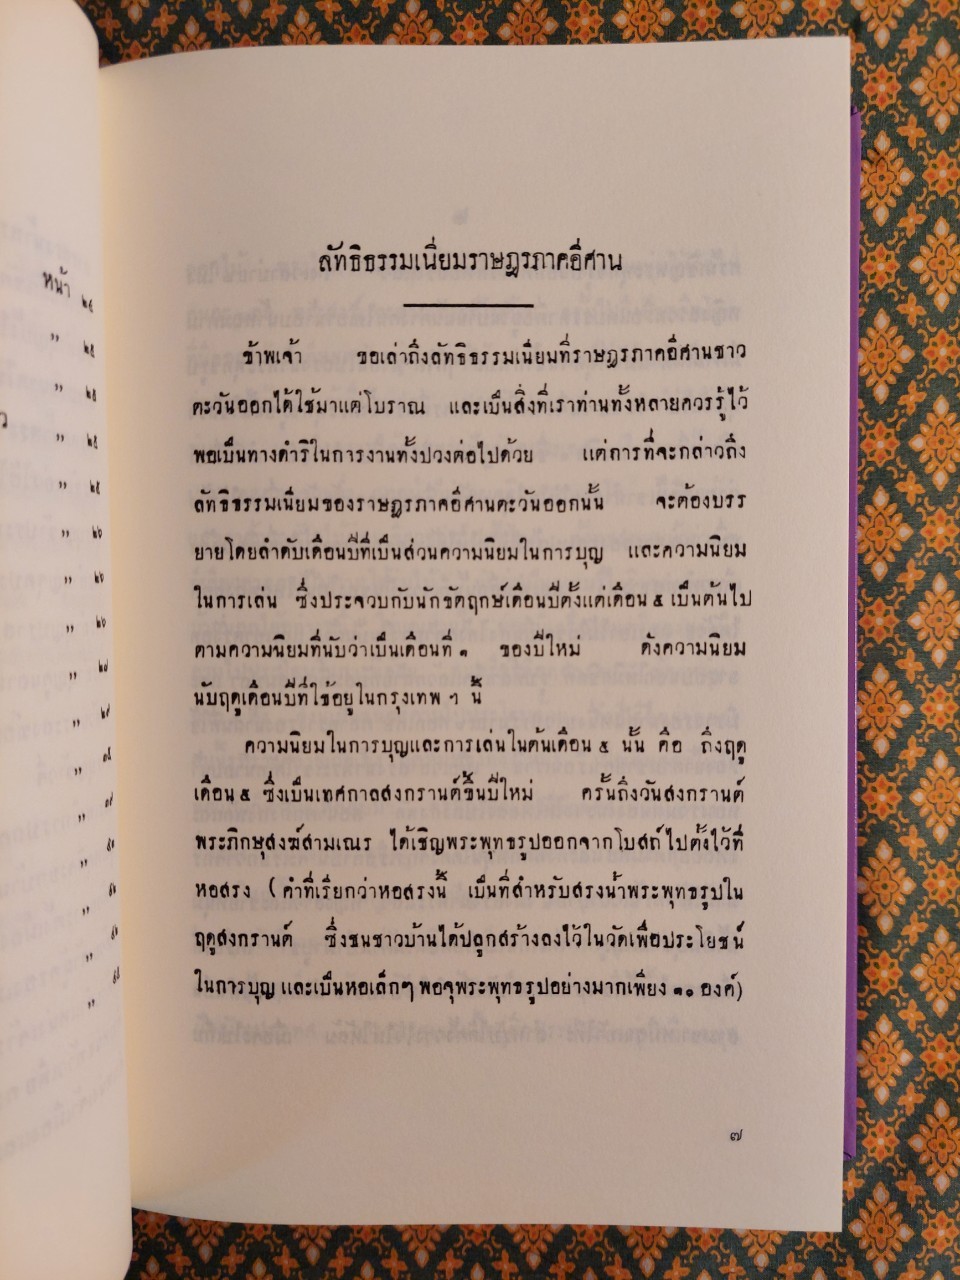 ลัทธิธรรมเนียมราษฎรภาคอีศาน
ข้าพเจ้า ขอเล่าถึงลัทธิธรรมเนียมที่ราษฎรภาคอีศานชาว
ตะวันออกได้ใช้มาแต่โบราณ และเป็นสิ่งที่เราท่านทั้งหลายควรรู้ไว้
พอเป็นทางดำริในการงานทั้งปวงต่อไปด้วย แต่การที่จะกล่าวถึง
ลัทธิธรรมเนียมของราษฎรภาคอีศานตะวันออกนั้น จะต้องบรร
ยายโดยลำดับเดือนปีที่เป็นส่วนความนิยมในการบุญ และความนิยม
ในการเล่น ซึ่งประจวบกับนักขัตฤกษ์เดือนปีตั้งแต่เดือน ๕ เป็นต้นไป
ตามความนิยมที่นับว่าเป็นเดือนที่ ๑ ของปีใหม่ ดังความนิยม
นับฤดูเดือนปีที่ใช้อยู่ในกรุงเทพ ฯ นี้
ความนิยมในการบุญและการเล่นในต้นเดือน ๕ นั้น คือ ถึงฤดู
เดือน ๕ ซึ่งเป็นเทศกาลสงกรานต์ขึ้นปีใหม่ ครั้นถึงวันสงกรานต์
พระภิกษุสงฆ์สามเณร ได้เชิญพระพุทธรูปออกจากโบสถ์ไปตั้งไว้ที่
หอสรง ( คำที่เรียกว่าหอสรงนี้ เป็นที่สำหรับสรงน้ำพระพุทธรูปใน
ฤดูสงกรานต์ ซึ่งชนชาวบ้านได้ปลูกสร้างลงไว้ในวัดเพื่อประโยชน์
ในการบุญ และเป็นหอเล็กๆ พอจุพระพุทธรูปอย่างมากเพียง ๑๐ องค์)
๗
หน้า ๒๔